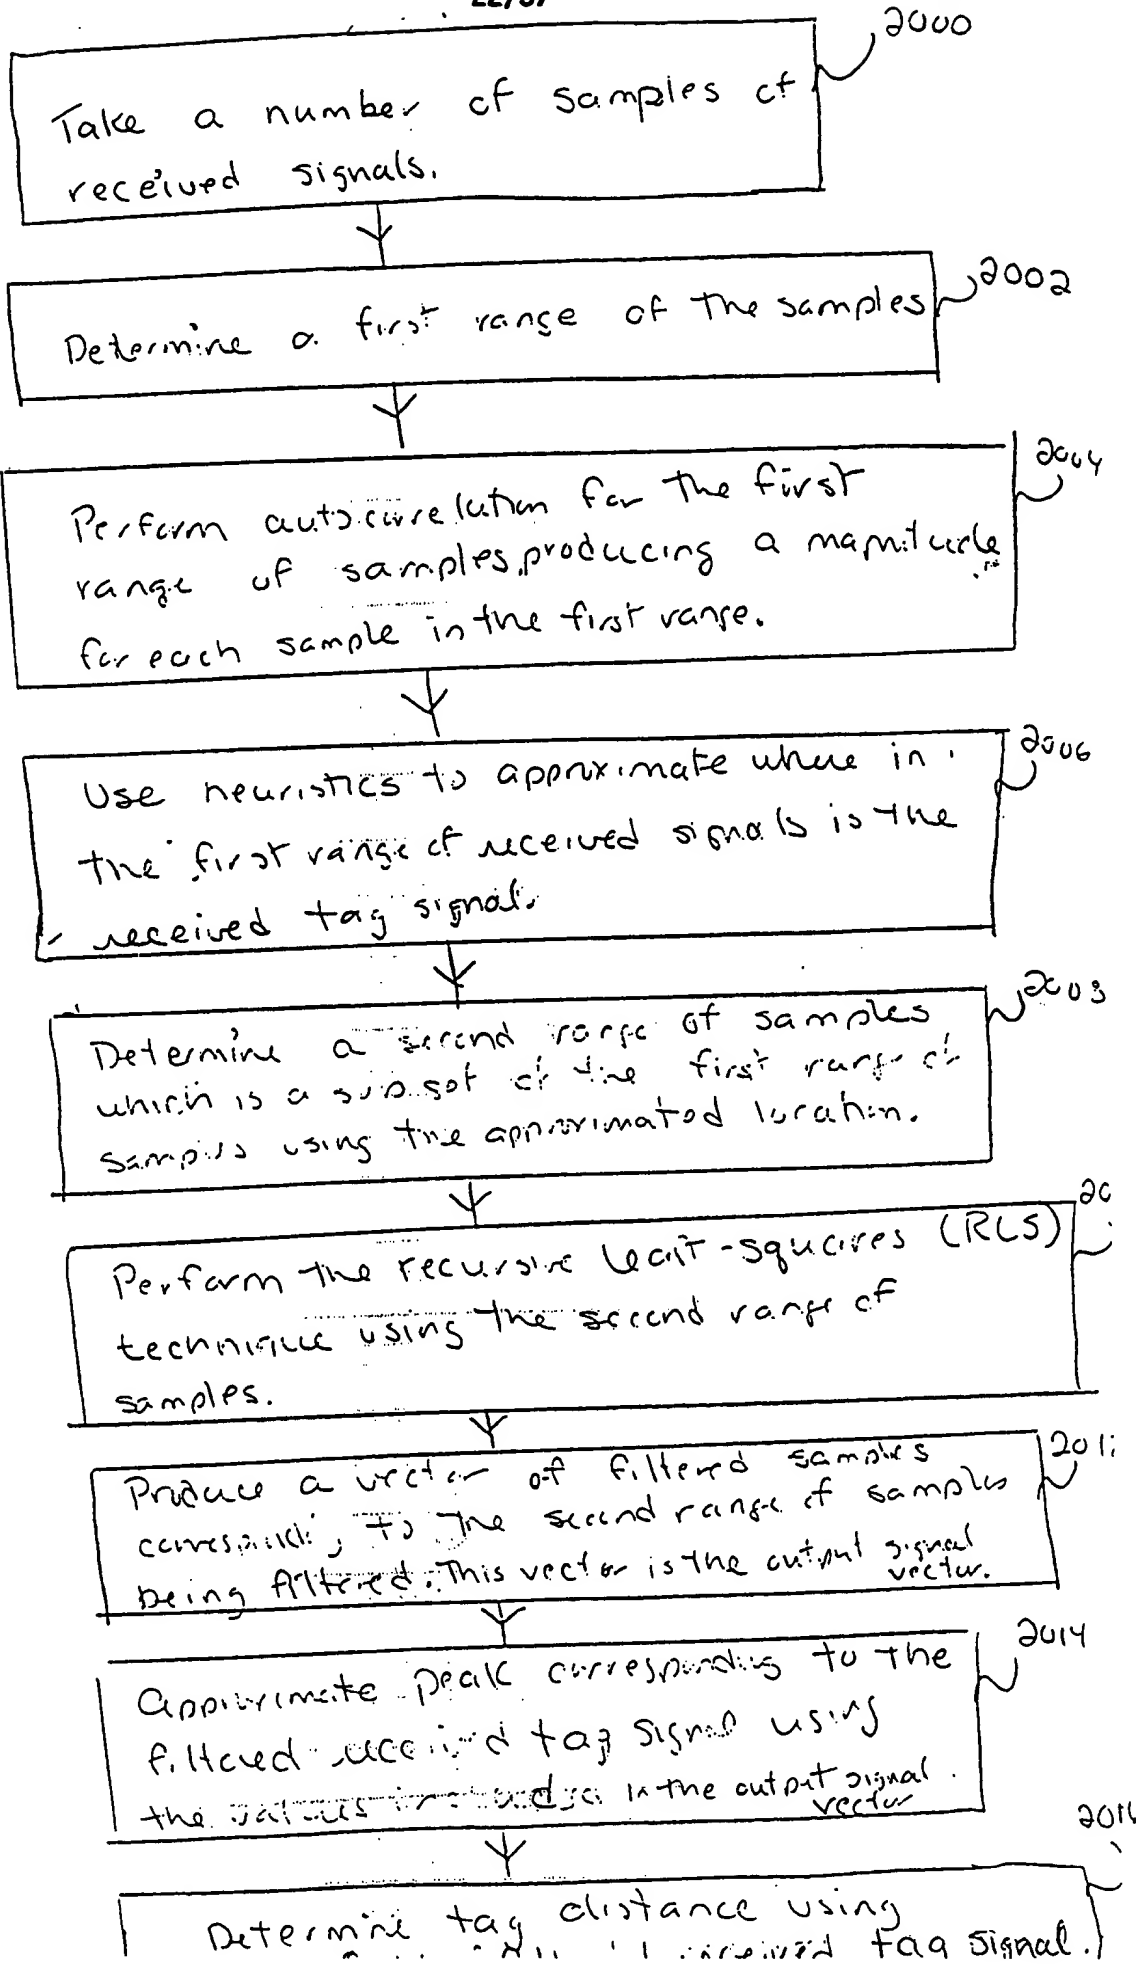 22/37
2000
Take a number of samples of
received signals.
2002
Determine a first range of the samples
2004
Perform autocorrelation for the first
range of samples, producing a magnitude
for each sample in the first range.
2006
Use heuristics to approximate where in
the first range of received signals is the
received tag signal.
2008
Determine a second range of samples
which is a subset of the first range of
samples using the approximated location.
20
Perform the recursive least-squares (RLS)
technique using the second range of
samples.
201
Produce a vector of filtered samples
corresponding to the second range of samples
being filtered. This vector is the output signal
vector.
2014
Approximate peak corresponding to the
filtered received tag signal using
the values in the output signal
vector
2016
Determine tag distance using
received tag signal.